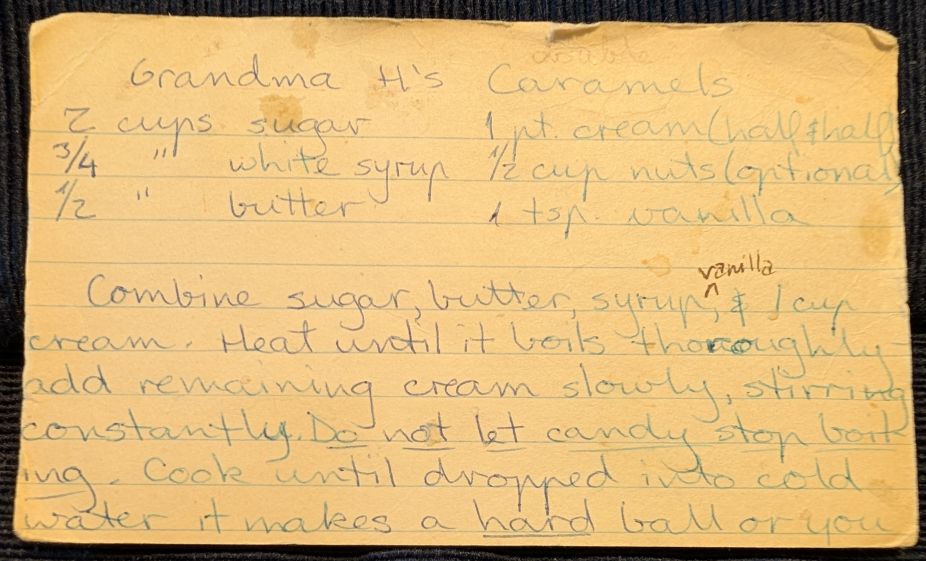 Grandma H's Caramels
2 cups sugar 1 pt. cream (half & half)
3/4 " white syrup 1/2 cup nuts (optional)
1/2 " butter 1 tsp. vanilla
vanilla
Combine sugar, butter, syrup, ^ & 1 cup
cream. Heat until it boils thoroughly
add remaining cream slowly, stirring
constantly. Do not let candy stop boil-
ing. Cook until dropped into cold
water it makes a hard ball or you